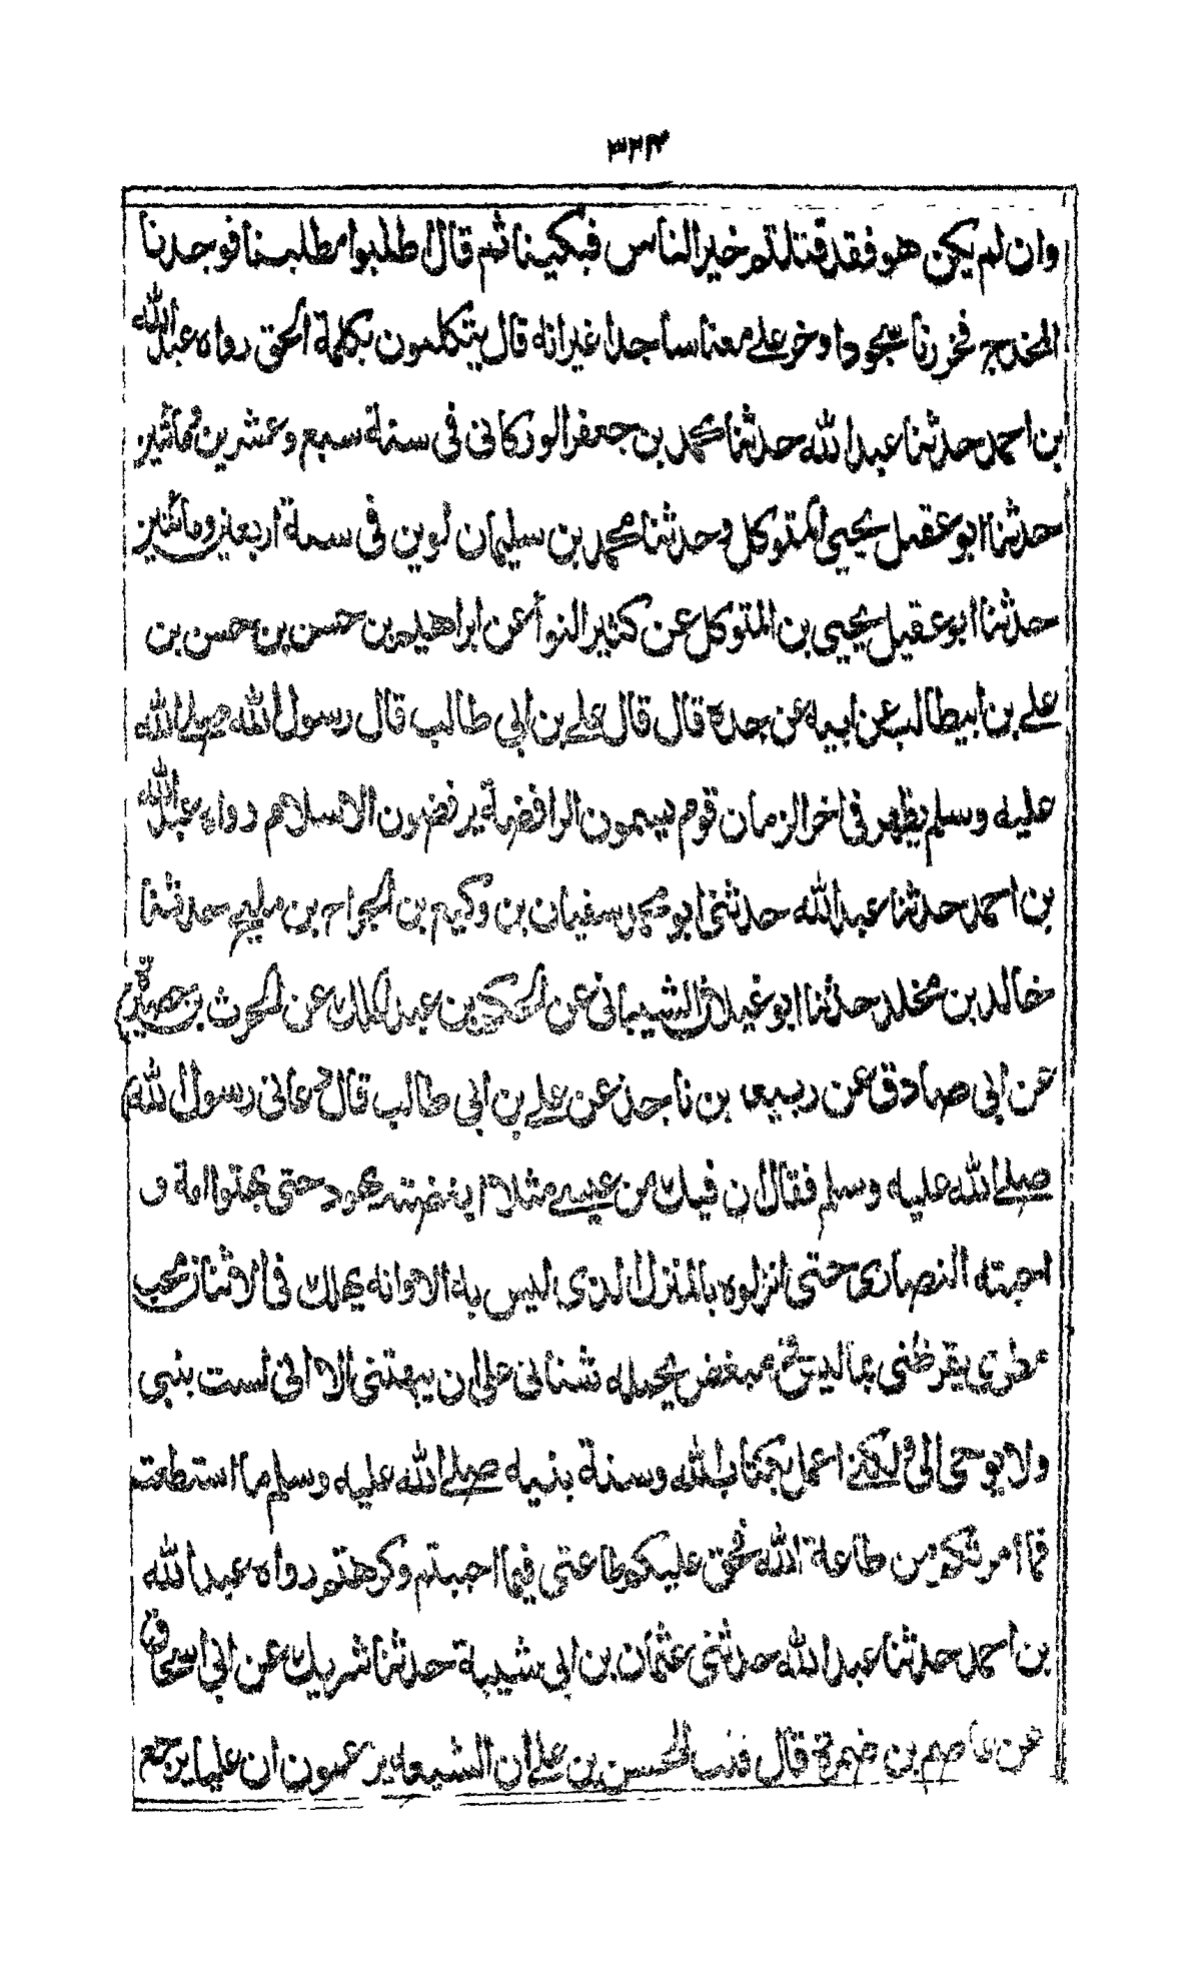 ۳۲۴
وان لم يكن هو فقد قتلتم خير الناس فبكينا ثم قال اطلبوا فطلبنا فوجدنا
المخدج فخررنا سجودا وخر علي معنا ساجدا غير انه قال يتكلمون بكلمة الحق رواه عبد الله
بن احمد حدثنا عبد الله حدثنا محمد بن جعفر الوركانى فى سنة سبع وعشرين ومائتين
حدثنا ابو عقيل يحيى المتوكل وحدثنا محمد بن سليمان لوين فى سنة اربعين ومائتين
حدثنا ابو عقيل يحيى بن المتوكل عن كثير النوأ عن ابراهيم بن حسن بن حسن بن
علي بن ابيطالب عن ابيه عن جده قال قال علي بن ابي طالب قال رسول الله صلي الله
عليه وسلم يظهر فى اخر الزمان قوم يسمون الرافضة يرفضون الاسلام رواه عبد الله
بن احمد حدثنا عبد الله حدثنى ابو محمد سفيان بن وكيع بن الجراح بن مليح حدثنا
خالد بن مخلد حدثنا ابو غيلان الشيبانى عن الحكم بن عبد الملك عن الحرث بن حصيرة
عن ابي صادق عن ربيعه بن ناجذ عن علي بن ابي طالب قال دعانى رسول الله
صلي الله عليه وسلم فقال ان فيك من عيسي مثلا ابغضته يهود حتى بهتوا امه و
احبته النصارى حتى انزلوه بالمنزل الذى ليس به الا وانه يهلك فى اثنان محب
مطرى يقرظنى بما ليس فى ومبغض يحمله شنانى على ان يبهتنى الا انى لست بنبى
ولا يوحى الي ولكنى اعمل بكتاب الله وسنة بنيه صلي الله عليه وسلم ما استطعت
فما امرتكم من طاعة الله فحق عليكم طاعتى فيما احببتم وكرهتم رواه عبد الله
بن احمد حدثنا عبد الله حدثنى عثمان بن ابي شيبة حدثنا شريك عن ابي اسحاق
عن عاصم بن ضمرة قال قلت للحسن بن علي ان الشيعه يزعمون ان عليا يرجع